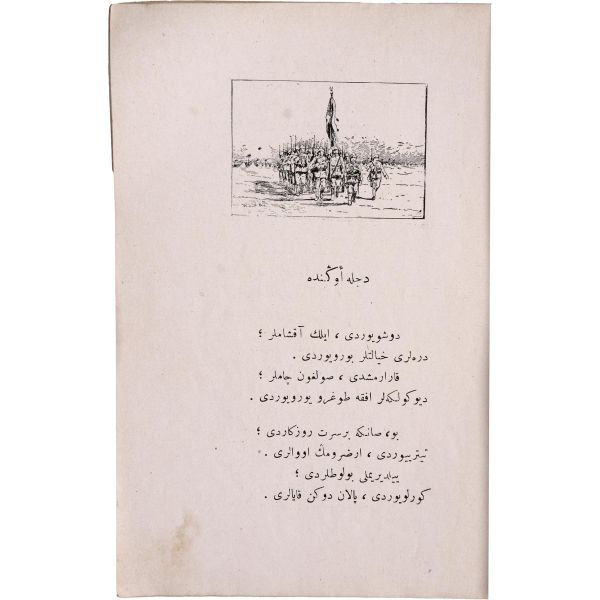 دجله أوڭنده
دوشويوردی ، ايلك آقشاملر ؛
دره‌لری خيالتلر بورويوردی .
قارارمشدی ، صولغون چاملر ؛
ديو كولكه‌لر افقه طوغرو يورويوردی .
بو، صانكه برسرت روزكاردی ؛
تيتريیوردی ، ارضرومڭ اووالری .
ييلديريملی بولوطلردی ؛
كورلويوردی ، پالان دوكن قايالری .